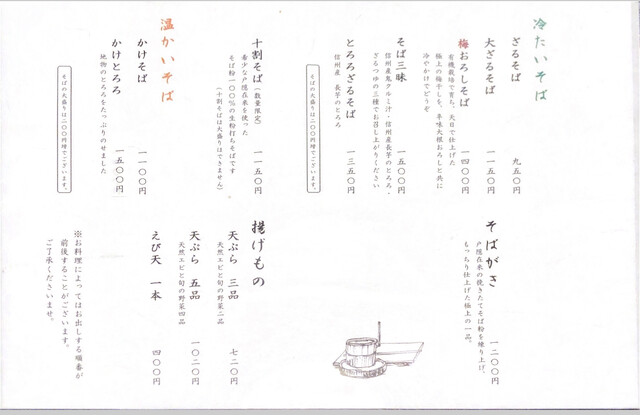 冷たいそば
ざるそば 九五〇円
大ざるそば 一一五〇円
梅おろしそば 一四〇〇円
有機栽培で育ち、天日で仕上げた
極上の梅干しを、辛味大根おろしと共に
冷やかけでどうぞ
そば三昧 一五〇〇円
信州産鬼クルミ汁・信州産長芋のとろろ・
ざるつゆの三種でお召し上がりください
とろろざるそば 一三五〇円
信州産 長芋のとろろ
そばの大盛りは二〇〇円増でございます。
十割そば(数量限定) 一一五〇円
希少な戸隠在来を使った
そば粉一〇〇%の生粉打ちそばです
(十割そばは大盛りはできません)
温かいそば
かけそば 一一〇〇円
かけとろろ 一五〇〇円
地物のとろろをたっぷりのせました
そばの大盛りは二〇〇円増でございます。
そばがき 一二〇〇円
戸隠在来の挽きたてそば粉を練り上げ、
もっちり仕上げた極上の一品。
揚げもの
天ぷら 三品 七二〇円
天然エビと旬の野菜二品
天ぷら 五品 一〇二〇円
天然エビと旬の野菜四品
えび天 一本 四〇〇円
※お料理によってはお出しする順番が
前後することがございます。
ご了承くださいませ。